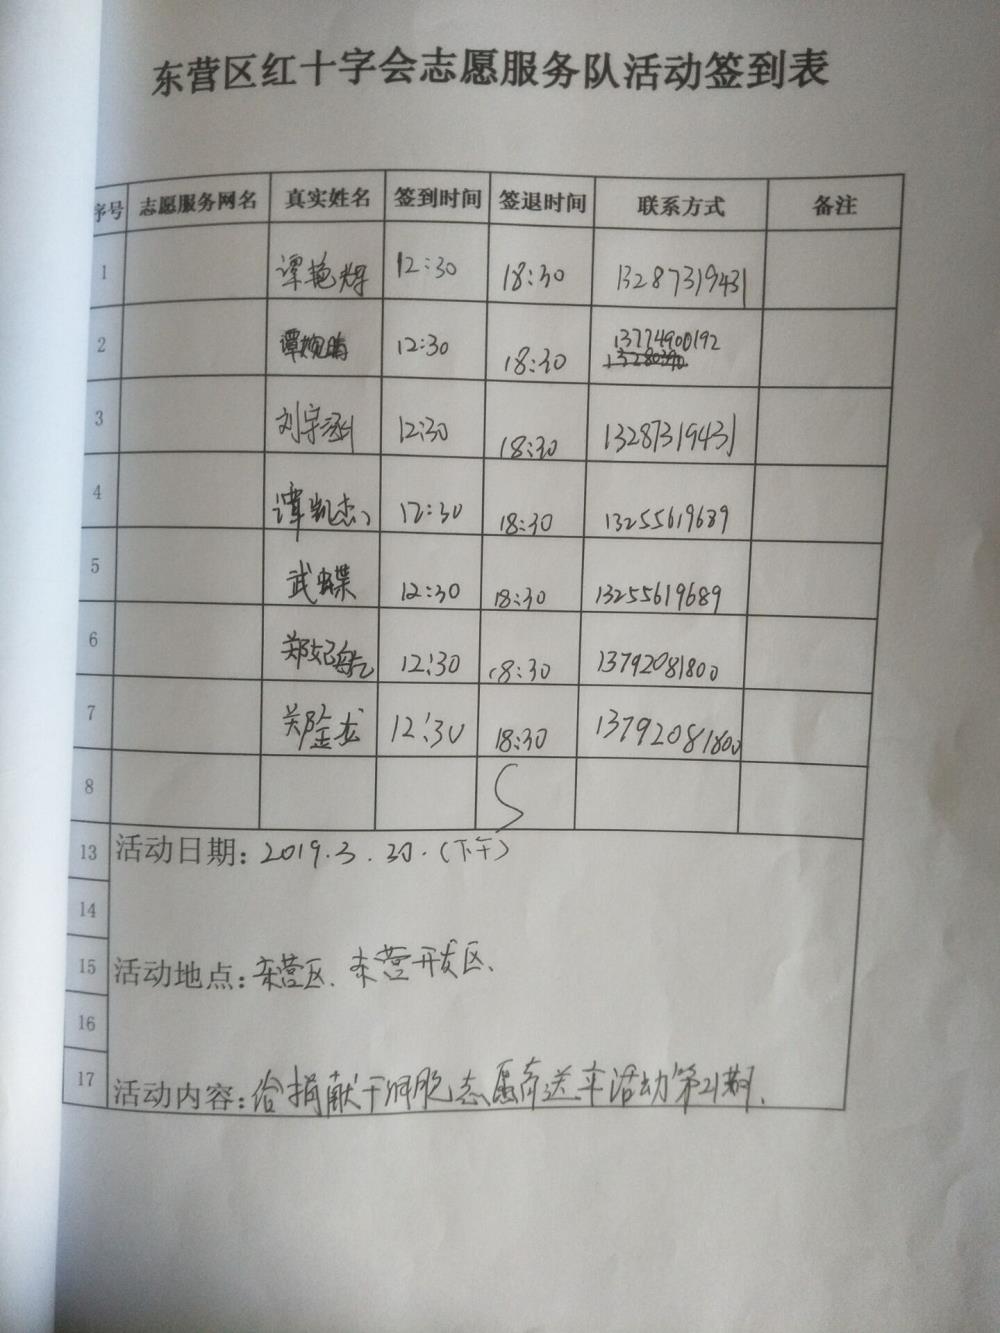 东营区红十字会志愿服务队活动签到表
序号 志愿服务网名 真实姓名 签到时间 签退时间 联系方式 备注
1 谭艳辉 12:30 18:30 13287319431
2 谭婉晴 12:30 18:30 13774900192
3 刘宇涵 12:30 18:30 13287319431
4 谭凯杰 12:30 18:30 13255619689
5 武蝶 12:30 18:30 13255619689
6 郑妃 12:30 18:30 13792081800
7 郑金龙 12:30 18:30 13792081800
8
13 活动日期: 2019.3.30.(下午)
14
15 活动地点: 东营区. 东营开发区.
16
17 活动内容: 给捐献干细胞志愿者送 活动第21期.